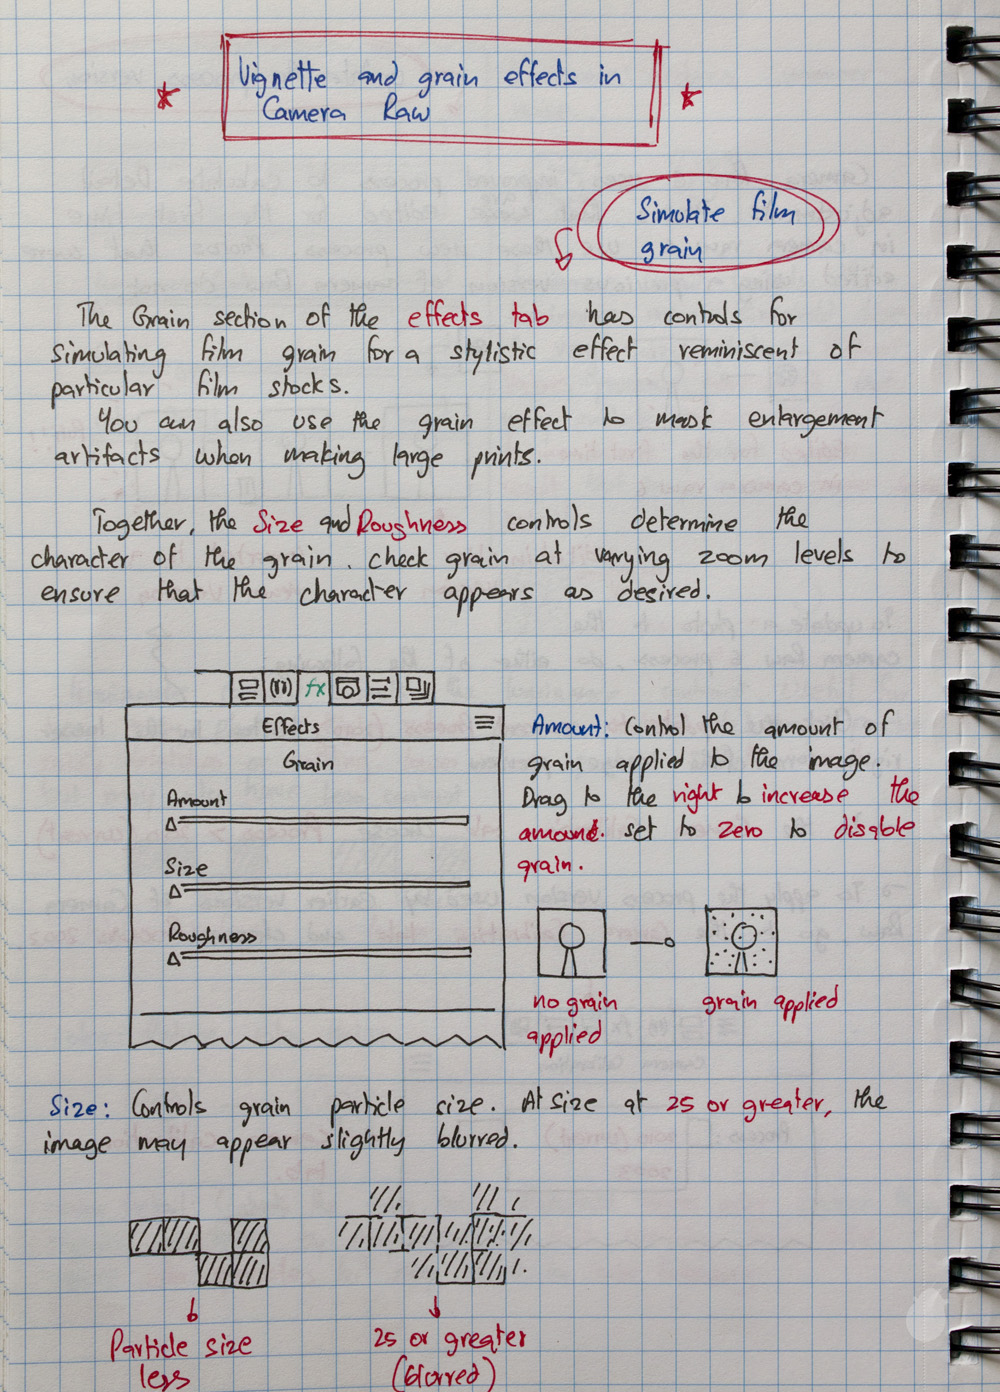 Vignette and grain effects in
Camera Raw
Simulate film
grain
The Grain section of the effects tab has controls for
simulating film grain for a stylistic effect reminiscent of
particular film stocks.
You can also use the grain effect to mask enlargement
artifacts when making large prints.
Together, the Size and Roughness controls determine the
character of the grain. check grain at varying zoom levels to
ensure that the character appears as desired.
fx
Effects
Grain
Amount
Size
Roughness
Amount: Control the amount of
grain applied to the image.
Drag to the right to increase the
amount. set to zero to disable
grain.
no grain
applied
grain applied
Size: Controls grain particle size. At size at 25 or greater, the
image may appear slightly blurred.
Particle size
less
25 or greater
(blurred)